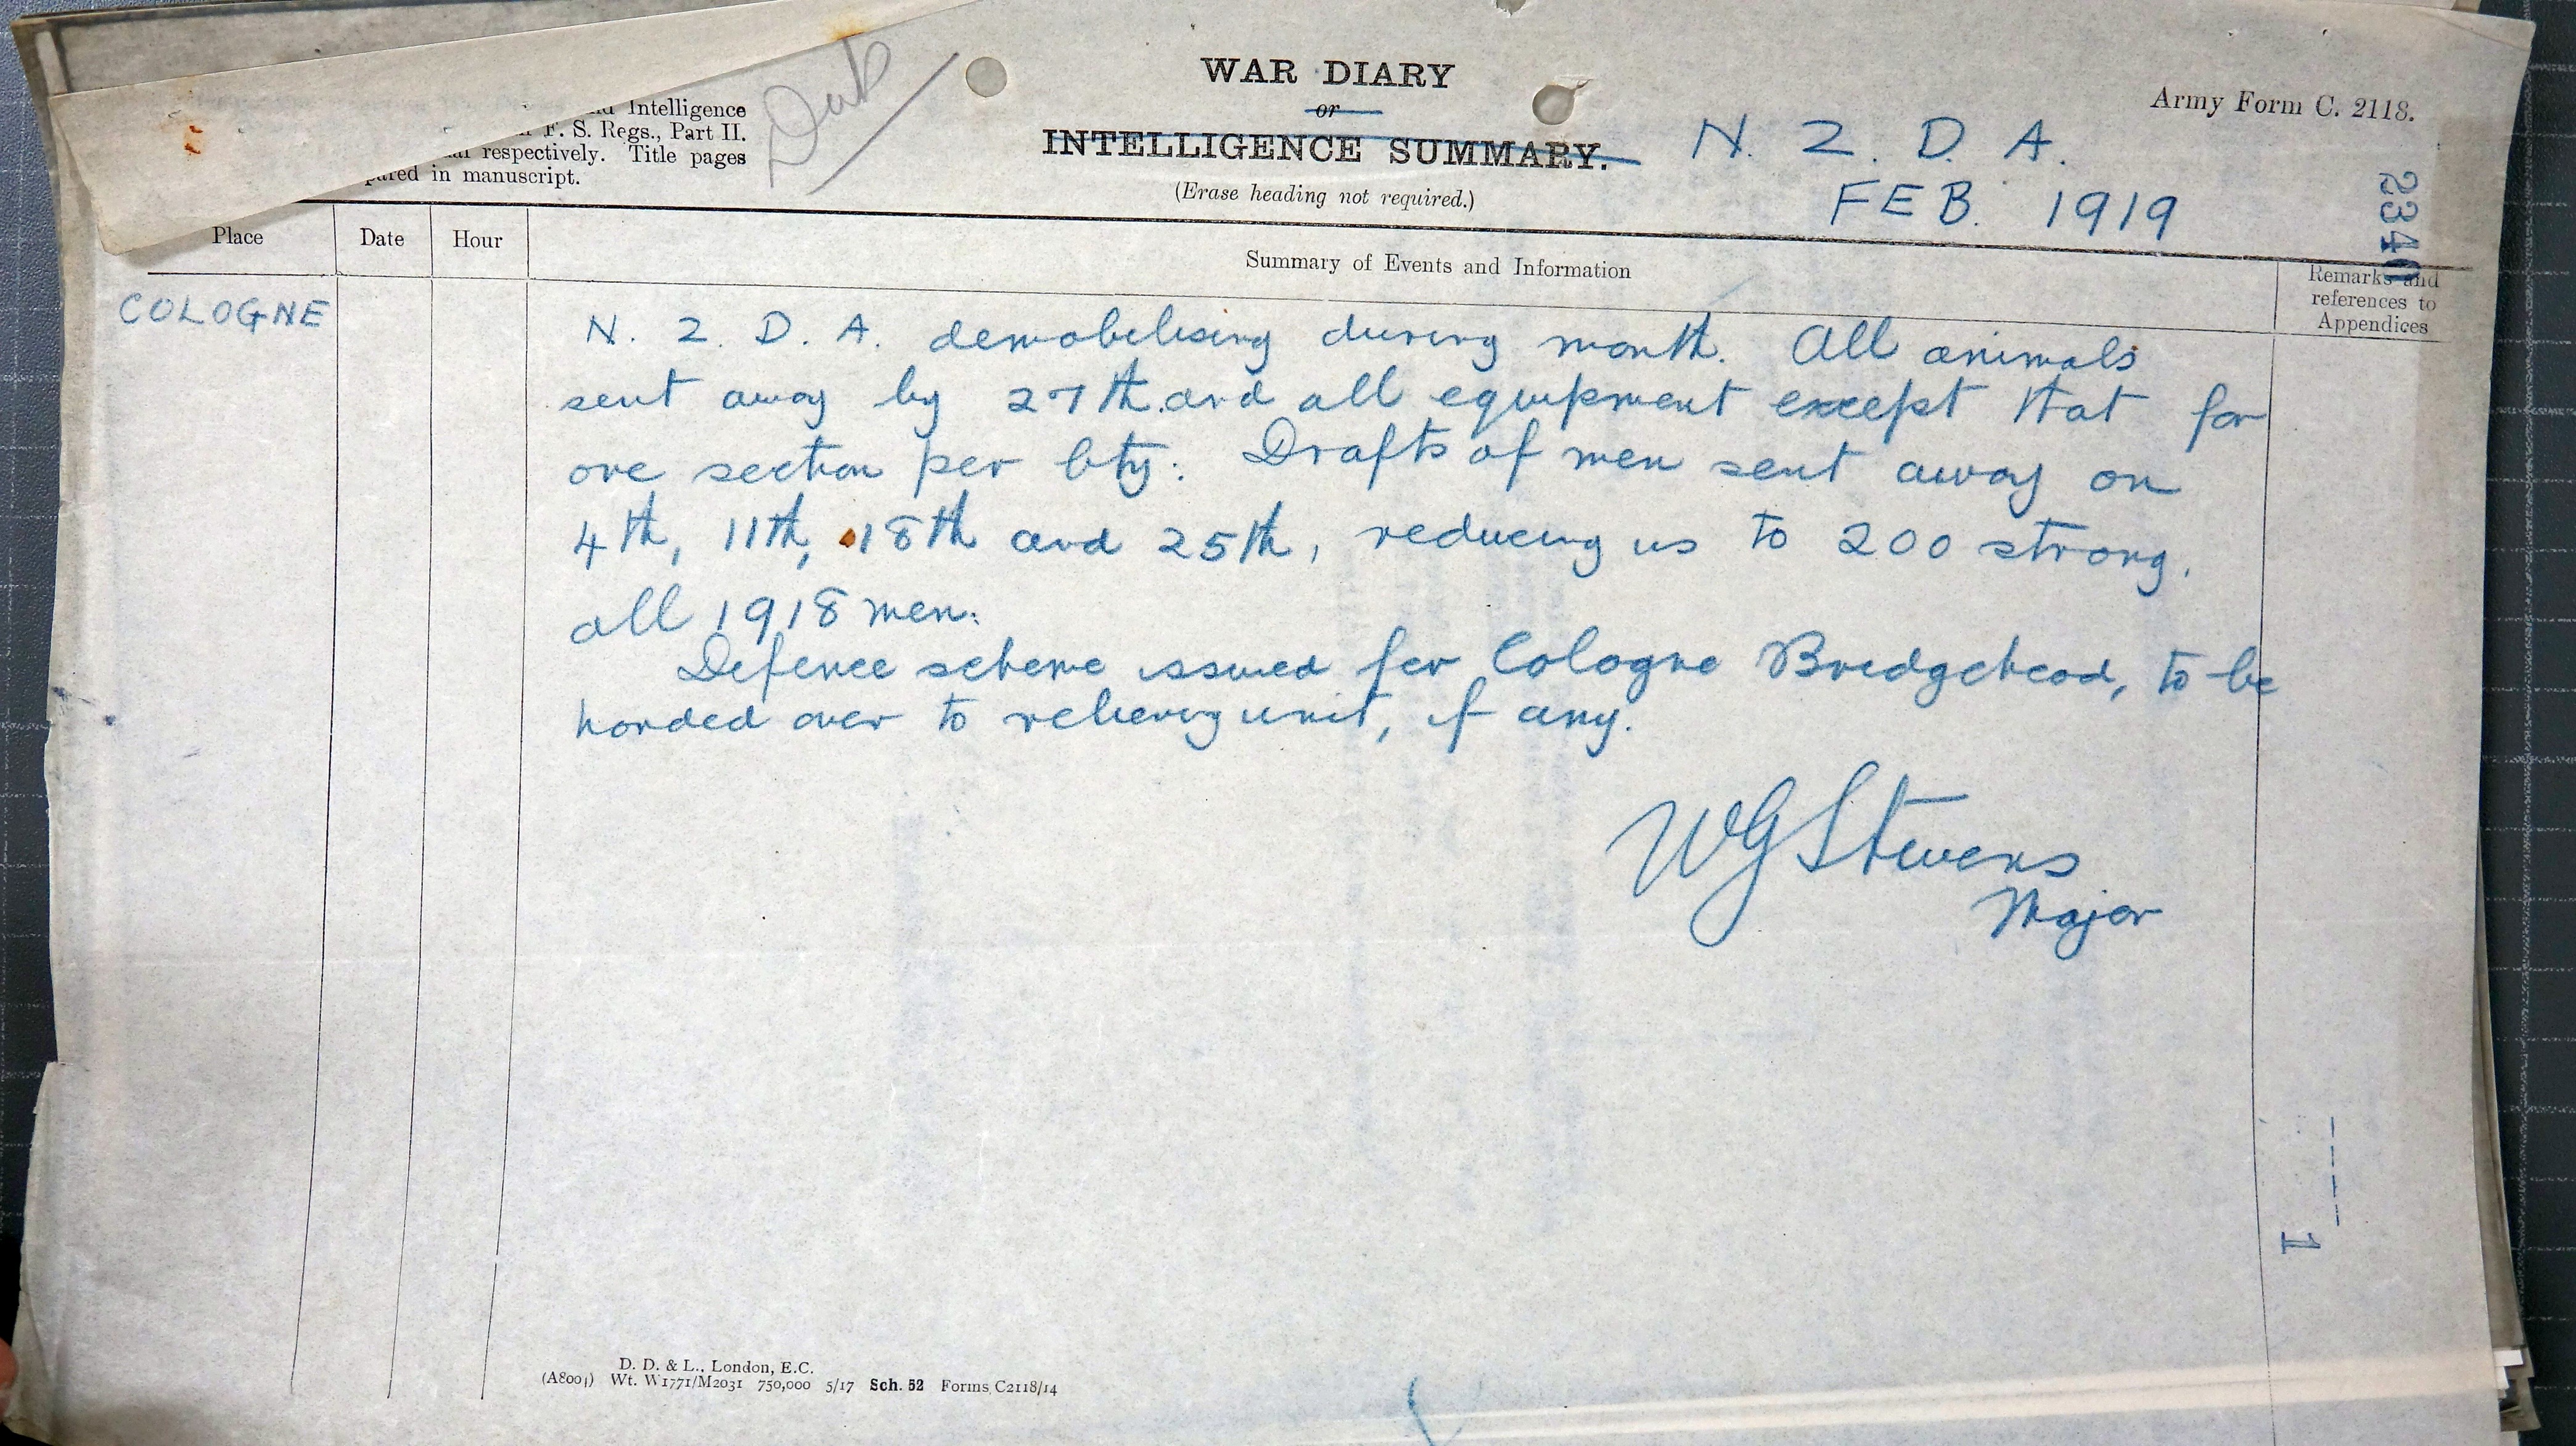 WAR DIARY
or
INTELLIGENCE SUMMARY.
(Erase heading not required.)
Army Form C. 2118.
N. Z. D. A.
FEB. 1919
Intelligence
F. S. Regs., Part II.
respectively. Title pages
in manuscript.
Place
Date
Hour
Summary of Events and Information
Remarks and
references to
Appendices
COLOGNE
N. Z. D. A. demobilising during month. All animals
sent away by 27th and all equipment except that for
one section per bty. Drafts of men sent away on
4th, 11th, 18th and 25th, reducing us to 200 strong.
all 1918 men.
Defence scheme issued for Cologne Bridgehead, to be
handed over to relieving unit, if any.
WG Stevens
Major
1
D. D. & L., London, E.C.
Wt. W1771/M2031 750,000 5/17 Sch. 52 Forms C2118/14